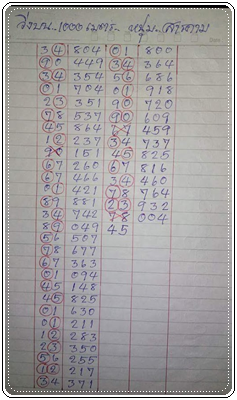 วิ่งบน..1000 เมตร.. หนุ่ม..สารคาม
34 804 01 800
90 449 34 364
34 354 56 686
01 704 01 918
23 351 90 720
78 537 90 609
45 864 459
12 237 34 737
90 151 45 825
67 260 67 816
67 466 34 460
01 421 78 764
89 881 23 932
34 742 78 004
89 049 45
56 507
78 677
67 363
01 094
45 148
45 825
01 630
01 211
12 283
23 350
56 255
12 217
34 371